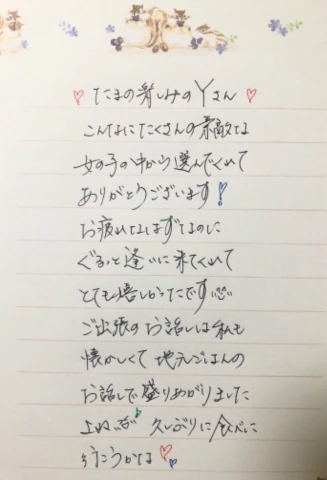 ♡ たまの楽しみのYさん ♡
こんなにたくさんの素敵な
女の子の中から選んでくれて
ありがとうございます!
お疲れなはずなのに
逢いに来てくれて
とても嬉しかったです
ご出張のお話しは私も
懐かしくて 地元ごはんの
お話しで盛りあがりました
久しぶりに食べに
行こうかな♡